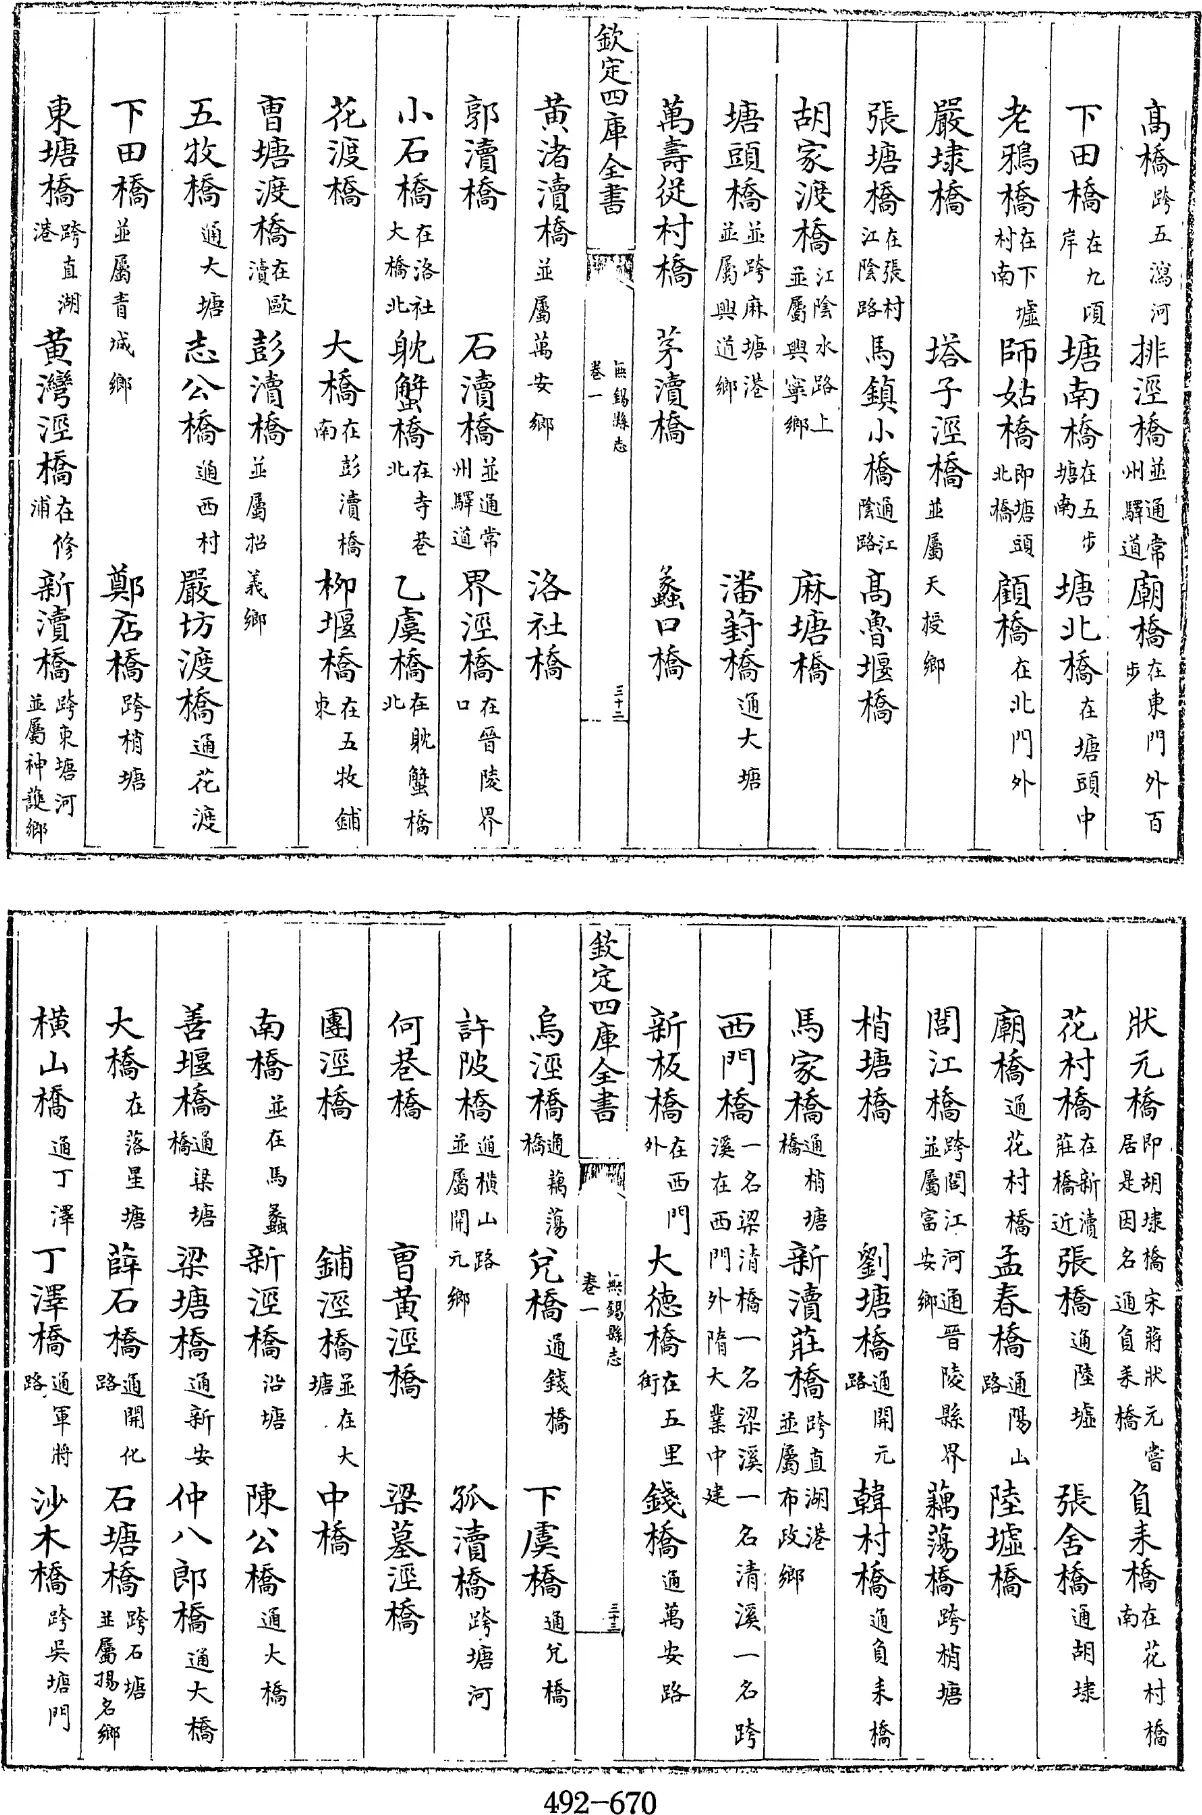 高橋跨五瀉河排涇橋並通常州驛道廟橋在東門外百步
下田橋在九頃岸塘南橋在五步塘南塘北橋在塘頭中
老鴉橋在下墟村南師姑橋即塘頭北橋顧橋在北門外
嚴埭橋塔子涇橋並屬天授鄉
張塘橋在張村江陰路馬鎮小橋通江陰路高魯堰橋
胡家渡橋江陰水路上並屬興寧鄉麻塘橋
塘頭橋並跨麻塘港並屬興道鄉潘葑橋通大塘
萬壽從村橋茅瀆橋蠡口橋
欽定四庫全書 無錫縣志 卷一 三十二
黃渚瀆橋並屬萬安鄉洛社橋
郭瀆橋石瀆橋並通常州驛道界涇橋在晉陵界口
小石橋在洛社大橋北躭蟹橋在寺巷北乙虞橋在躭蟹橋北
花渡橋大橋在彭瀆橋南柳堰橋在五牧鋪東
曹塘渡橋在歐瀆彭瀆橋並屬招義鄉
五牧橋通大塘志公橋通西村嚴坊渡橋通花渡
下田橋並屬青城鄉鄭店橋跨梢塘
東塘橋跨直湖港黃灣涇橋在修浦新瀆橋跨東塘河並屬神護鄉
狀元橋即胡埭橋宋蔣狀元嘗居是因名通負耒橋負耒橋在花村橋南
花村橋在新瀆莊橋近張橋通陸墟張舍橋通胡埭
廟橋通花村橋孟春橋通陽山路陸墟橋
閭江橋跨閭江河通晉陵縣界並屬富安鄉藕蕩橋跨梢塘
梢塘橋劉塘橋通開元路韓村橋通負耒橋
馬家橋通梢塘橋新瀆莊橋跨直湖港並屬布政鄉
西門橋一名梁清橋一名梁溪一名清溪一名跨溪在西門外隋大業中建
新板橋在西門外大德橋在五里街錢橋通萬安路
欽定四庫全書 無錫縣志 卷一 三十三
烏涇橋通藕蕩橋兌橋通錢橋下虞橋通兌橋
許陂橋通橫山路並屬開元鄉孤瀆橋跨塘河
何巷橋曹黃涇橋梁墓涇橋
團涇橋鋪涇橋並在大塘中橋
南橋並在馬蠡新涇橋沿塘陳公橋通大橋
善堰橋通梁塘橋梁塘橋通新安仲八郎橋通大橋
大橋在落星塘薛石橋通開化路石塘橋跨石塘並屬揚名鄉
橫山橋通丁澤丁澤橋通軍將路沙木橋跨吳塘門
492-670